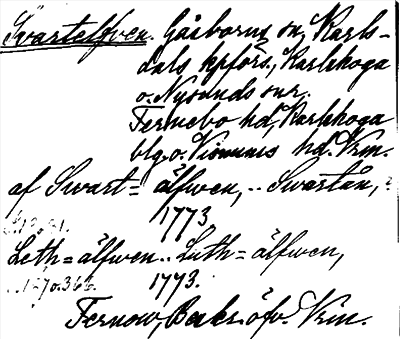 Svartelfven. Gåsborns sn, Karls-
dals kpförs., Karlskoga
o. Nysunds snr.
Fernebo hd, Karlskoga
blg. o. Visnums hd. Vrm.
af Swart= älfwen, .. Swartån,
1773
Leth= älfwen .. Luth= älfwen,
1773.
Fernow, Beskr. öfv. Vrm.